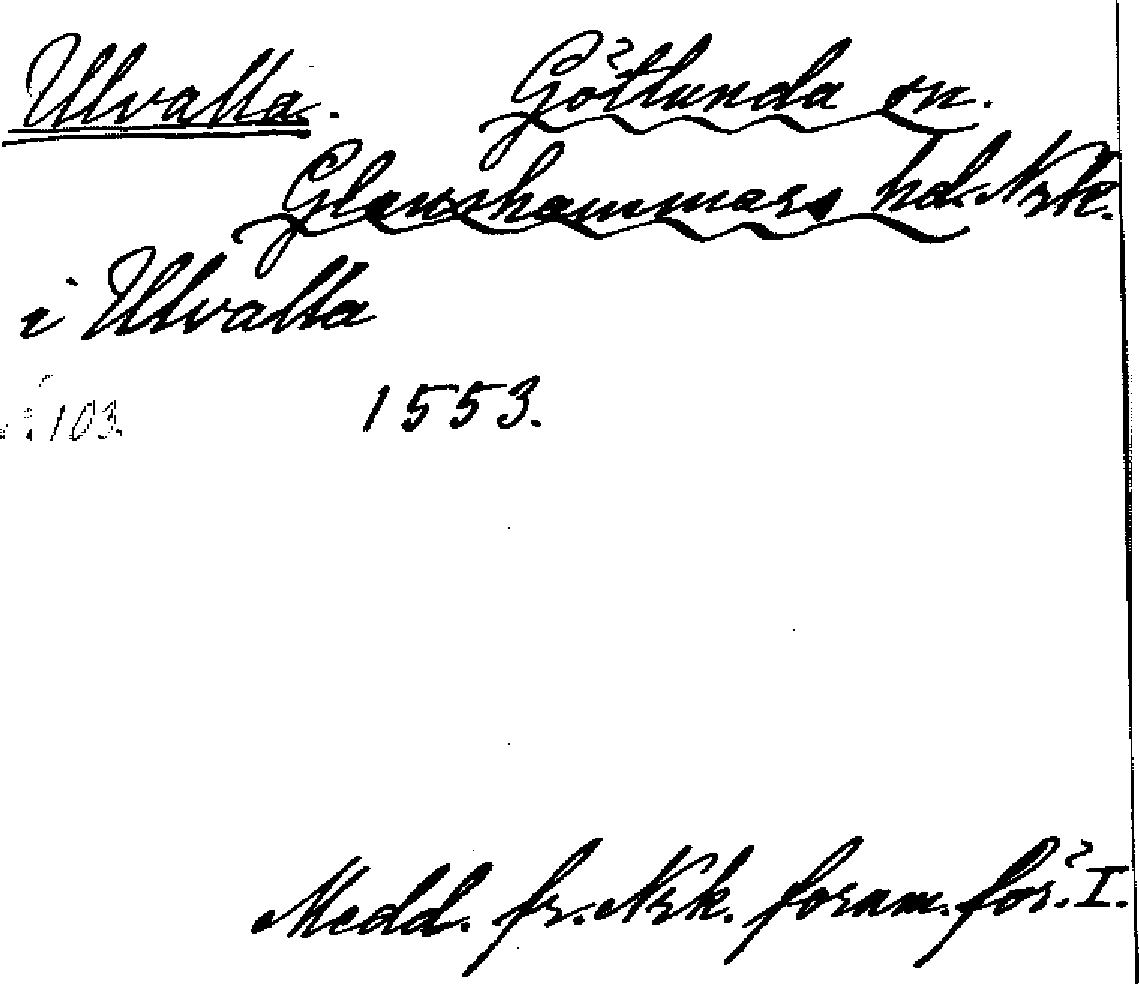 Ulvalla. Götlunda sn.
Glanshammars hd. Nrke.
i Ulvalla
103. 1553.
Medd. fr. Nrk. fornm. för. I.